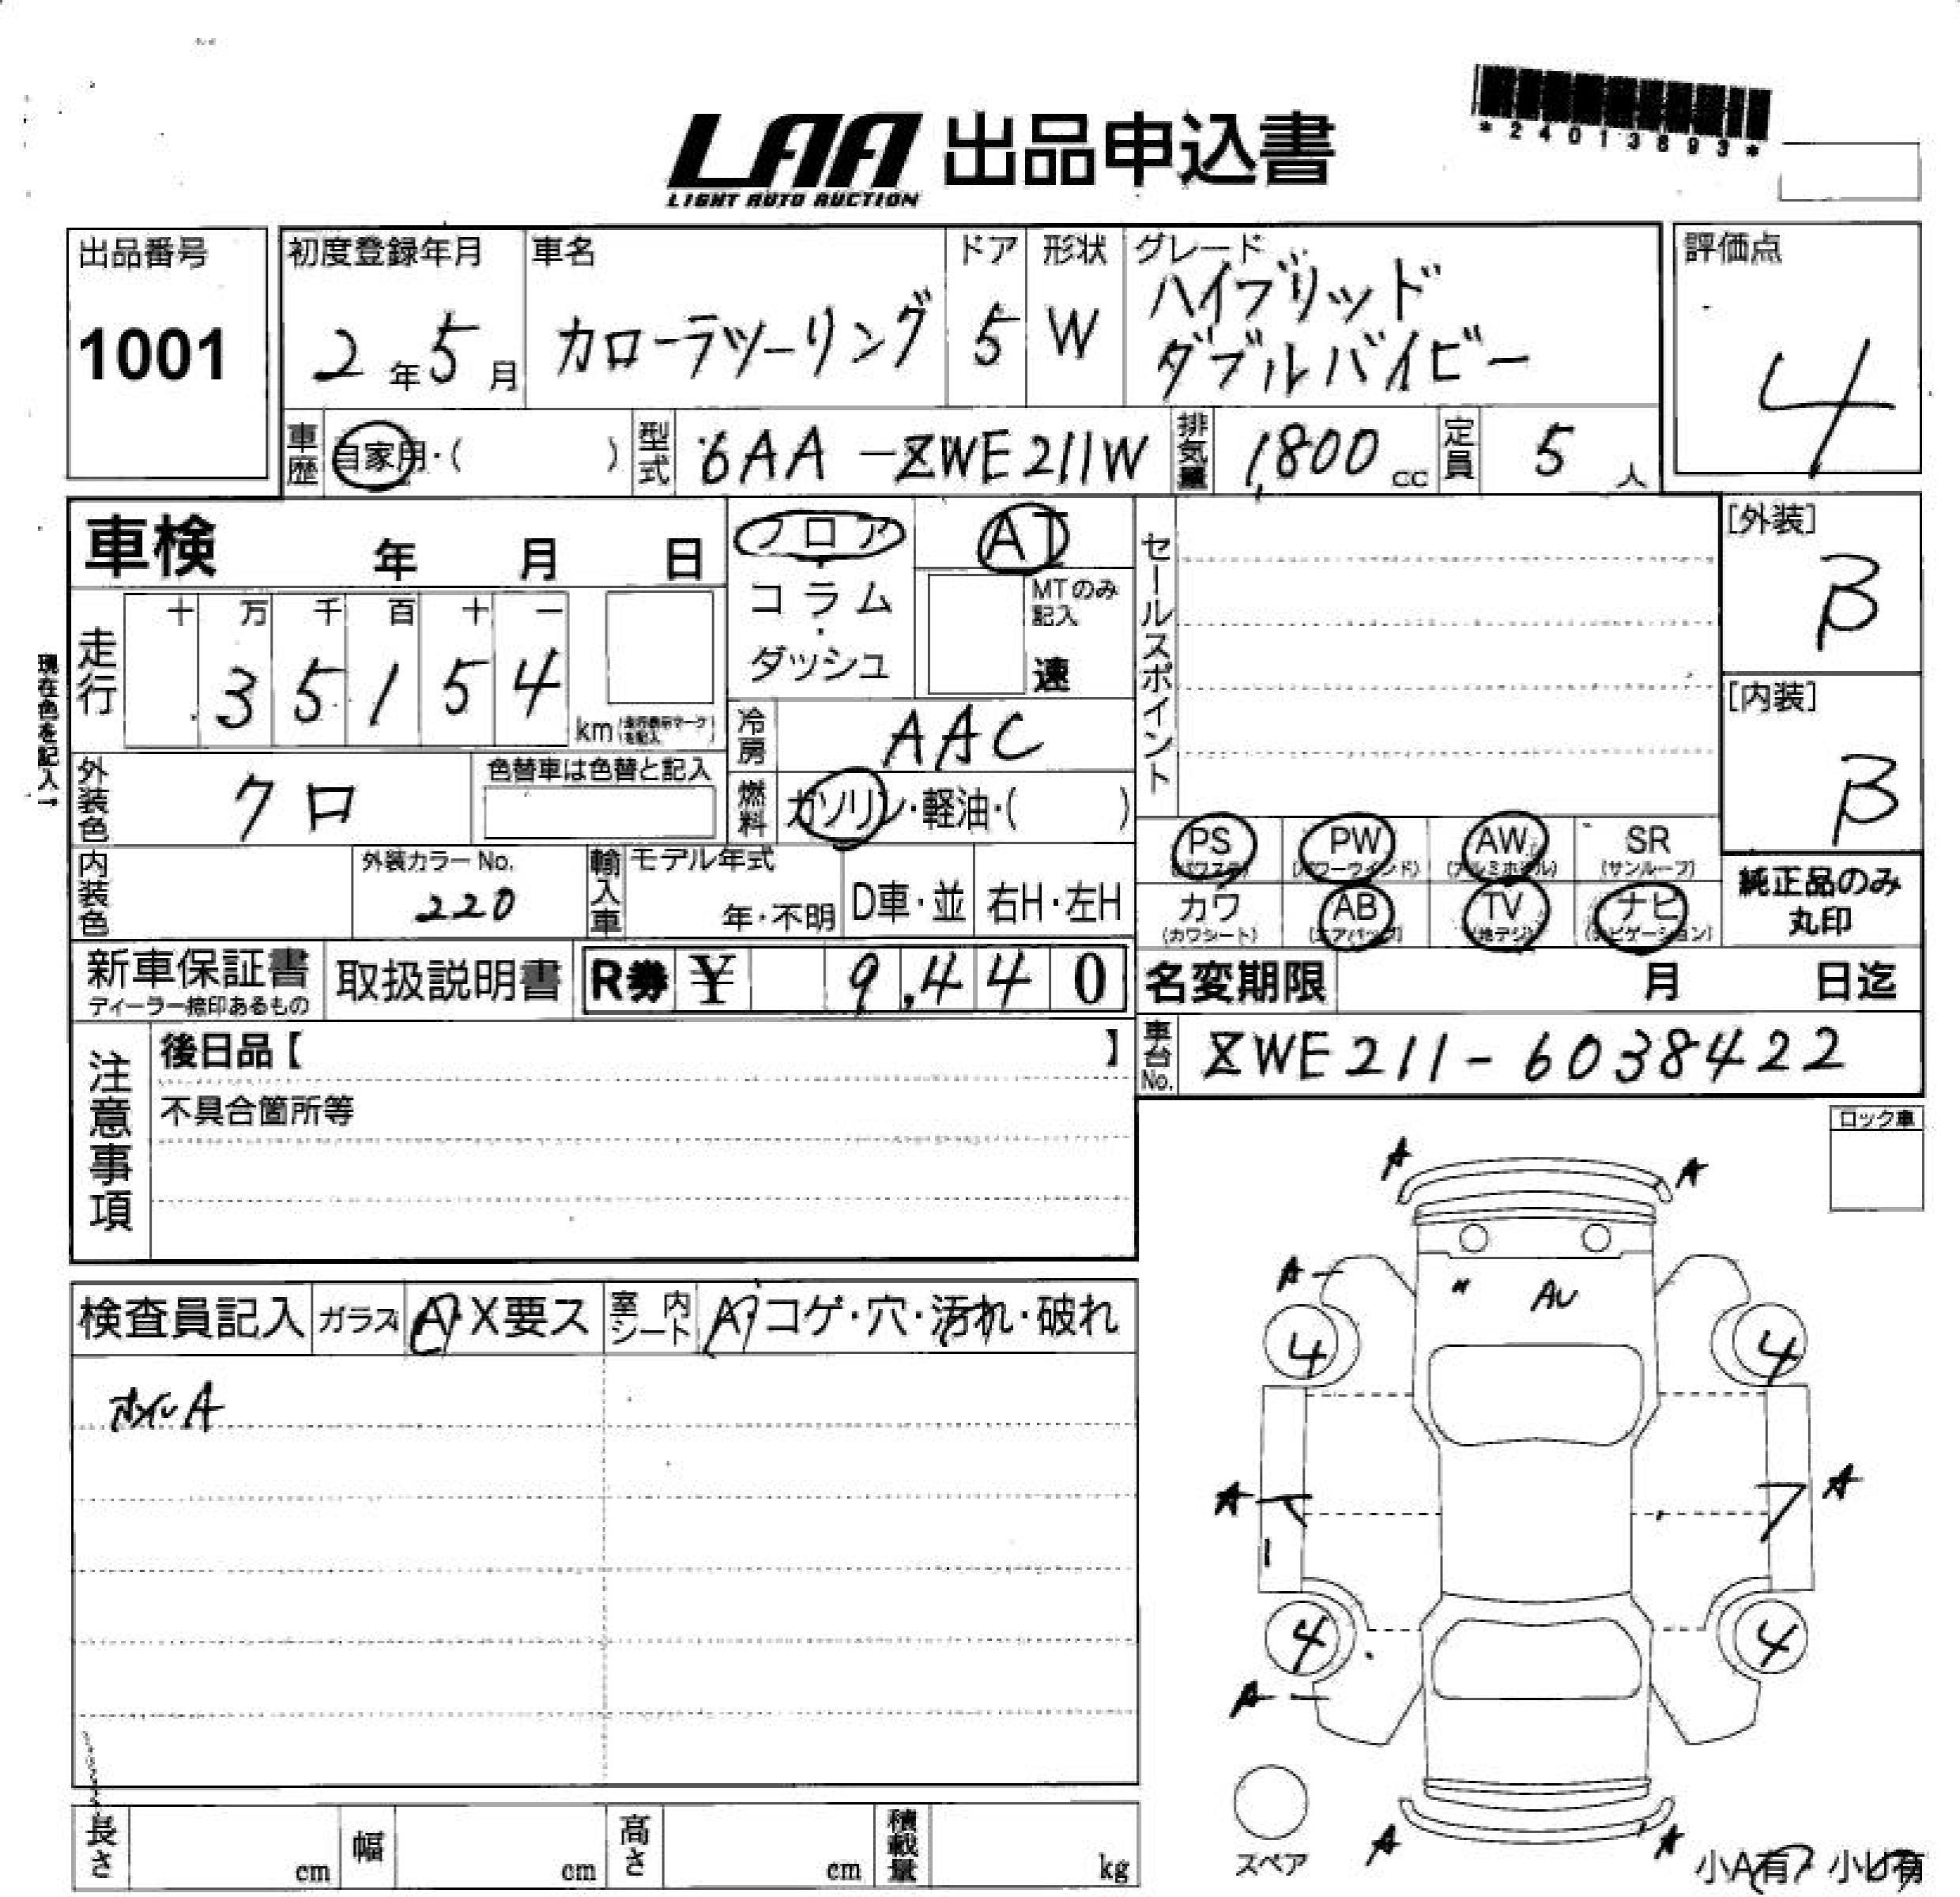 *24013893*
LAA 出品申込書
LIGHT AUTO AUCTION
出品番号 1001
初度登録年月 2年5月
車名 カローラツーリング
ドア 5
形状 W
グレード ハイブリッド
ダブルバイビー
評価点 4
車歴 自家用・( )
型式 6AA-ZWE211W
排気量 1,800 cc
定員 5 人
車検 年 月 日
フロア・コラム・ダッシュ
AT
MTのみ記入
速
セールスポイント
[外装] B
[内装] B
現在色を記入→
走行 十 万 千 百 十 一
3 5 1 5 4 km
冷房 AAC
外装色 クロ
色替車は色替と記入
燃料 ガソリン・軽油・( )
内装色
外装カラーNo. 220
輸入車 モデル年式 年・不明
D車・並
右H・左H
PS (パワステ)
PW (パワーウインド)
AW (アルミホイル)
SR (サンルーフ)
カワ (カワシート)
AB (エアバッグ)
TV (地デジ)
ナビ (ナビゲーション)
純正品のみ
丸印
新車保証書
ディーラー捺印あるもの
取扱説明書
R券 ¥ 9,440
名変期限 月 日迄
車台No. ZWE211-6038422
注意事項
後日品【 】
不具合箇所等
ロック車
検査員記入
ガラス A・X要ス
室内シート A・コゲ・穴・汚れ・破れ
ホイルA
A A
A
" AU
4 4
A A
4 4
A
A A
スペア
小A有・小U有
長さ cm
幅 cm
高さ cm
積載量 kg